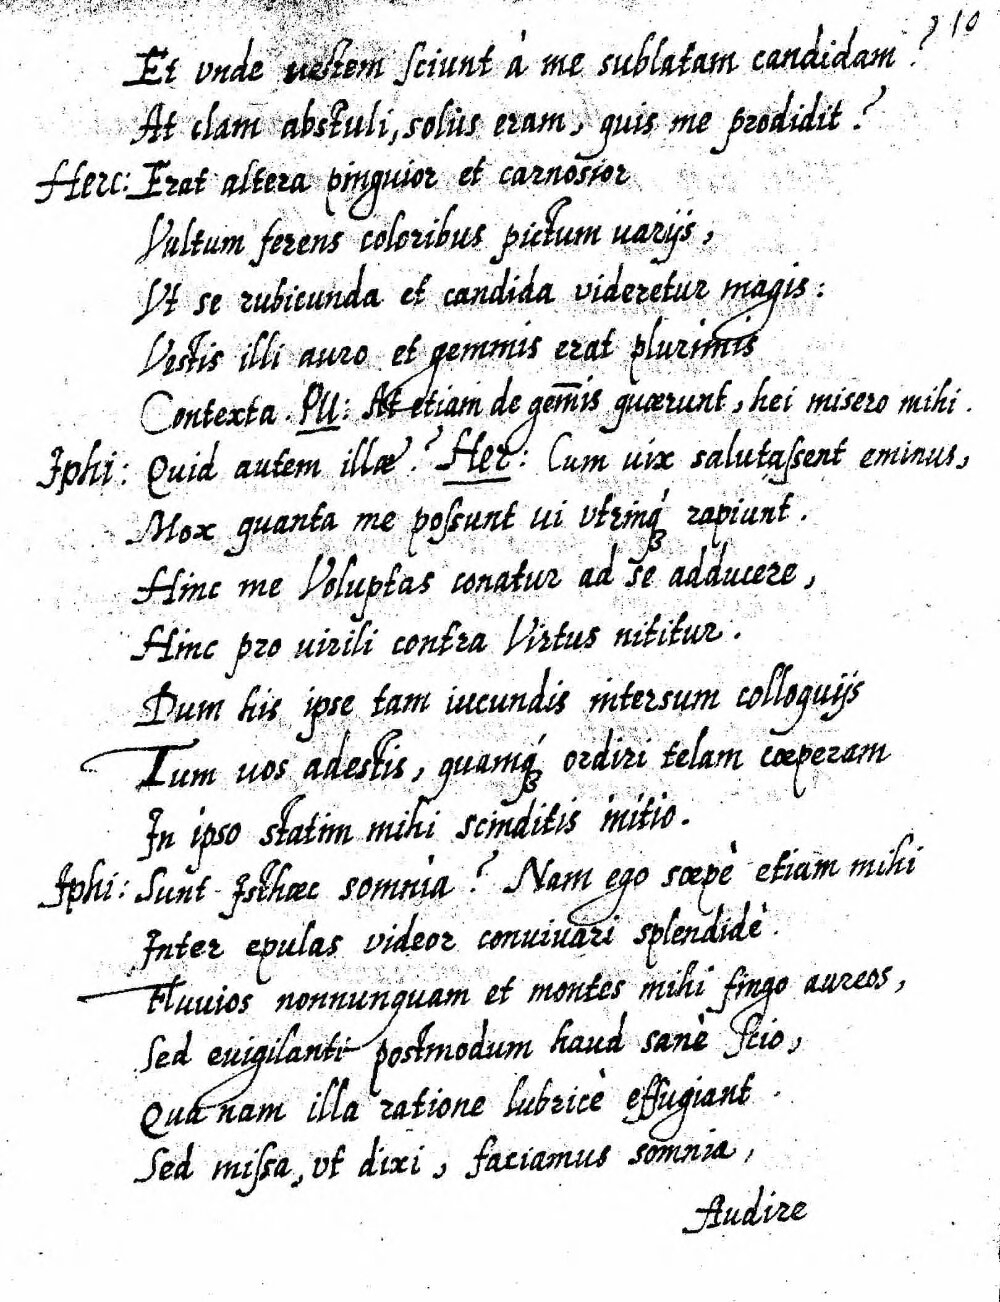 310
Et vnde uestem sciunt à me sublatam candidam?
At clam abstuli, solus eram, quis me prodidit?
Herc: Erat altera pinguior et carnosior
Vultum ferens coloribus pictum uarijs,
Vt se rubicunda et candida videretur magis:
Vestis illi auro et gemmis erat plurimis
Contexta. Pu: At etiam de gem̄is quærunt, hei misero mihi.
Iphi: Quid autem illæ? Her: Cum uix salutassent eminus,
Mox quanta me possunt ui vtrinq́ꝫ rapiunt.
Hinc me Voluptas conatur ad se adducere,
Hinc pro uirili contra Virtus nititur.
Dum his ipse tam iucundis intersum colloquijs
Tum uos adestis, quamq́ꝫ ordiri telam cœperam
In ipso statim mihi scinditis initio.
Iphi: Sunt Isthæc somnia? Nam ego sæpè etiam mihi
Inter epulas videor conuiuari splendidè.
Fluuios nonnunquam et montes mihi fingo aureos,
Sed euigilanti postmodum haud sanè scio,
Qua nam illa ratione lubricè effugiant.
Sed missa, vt dixi, faciamus somnia,
Audire